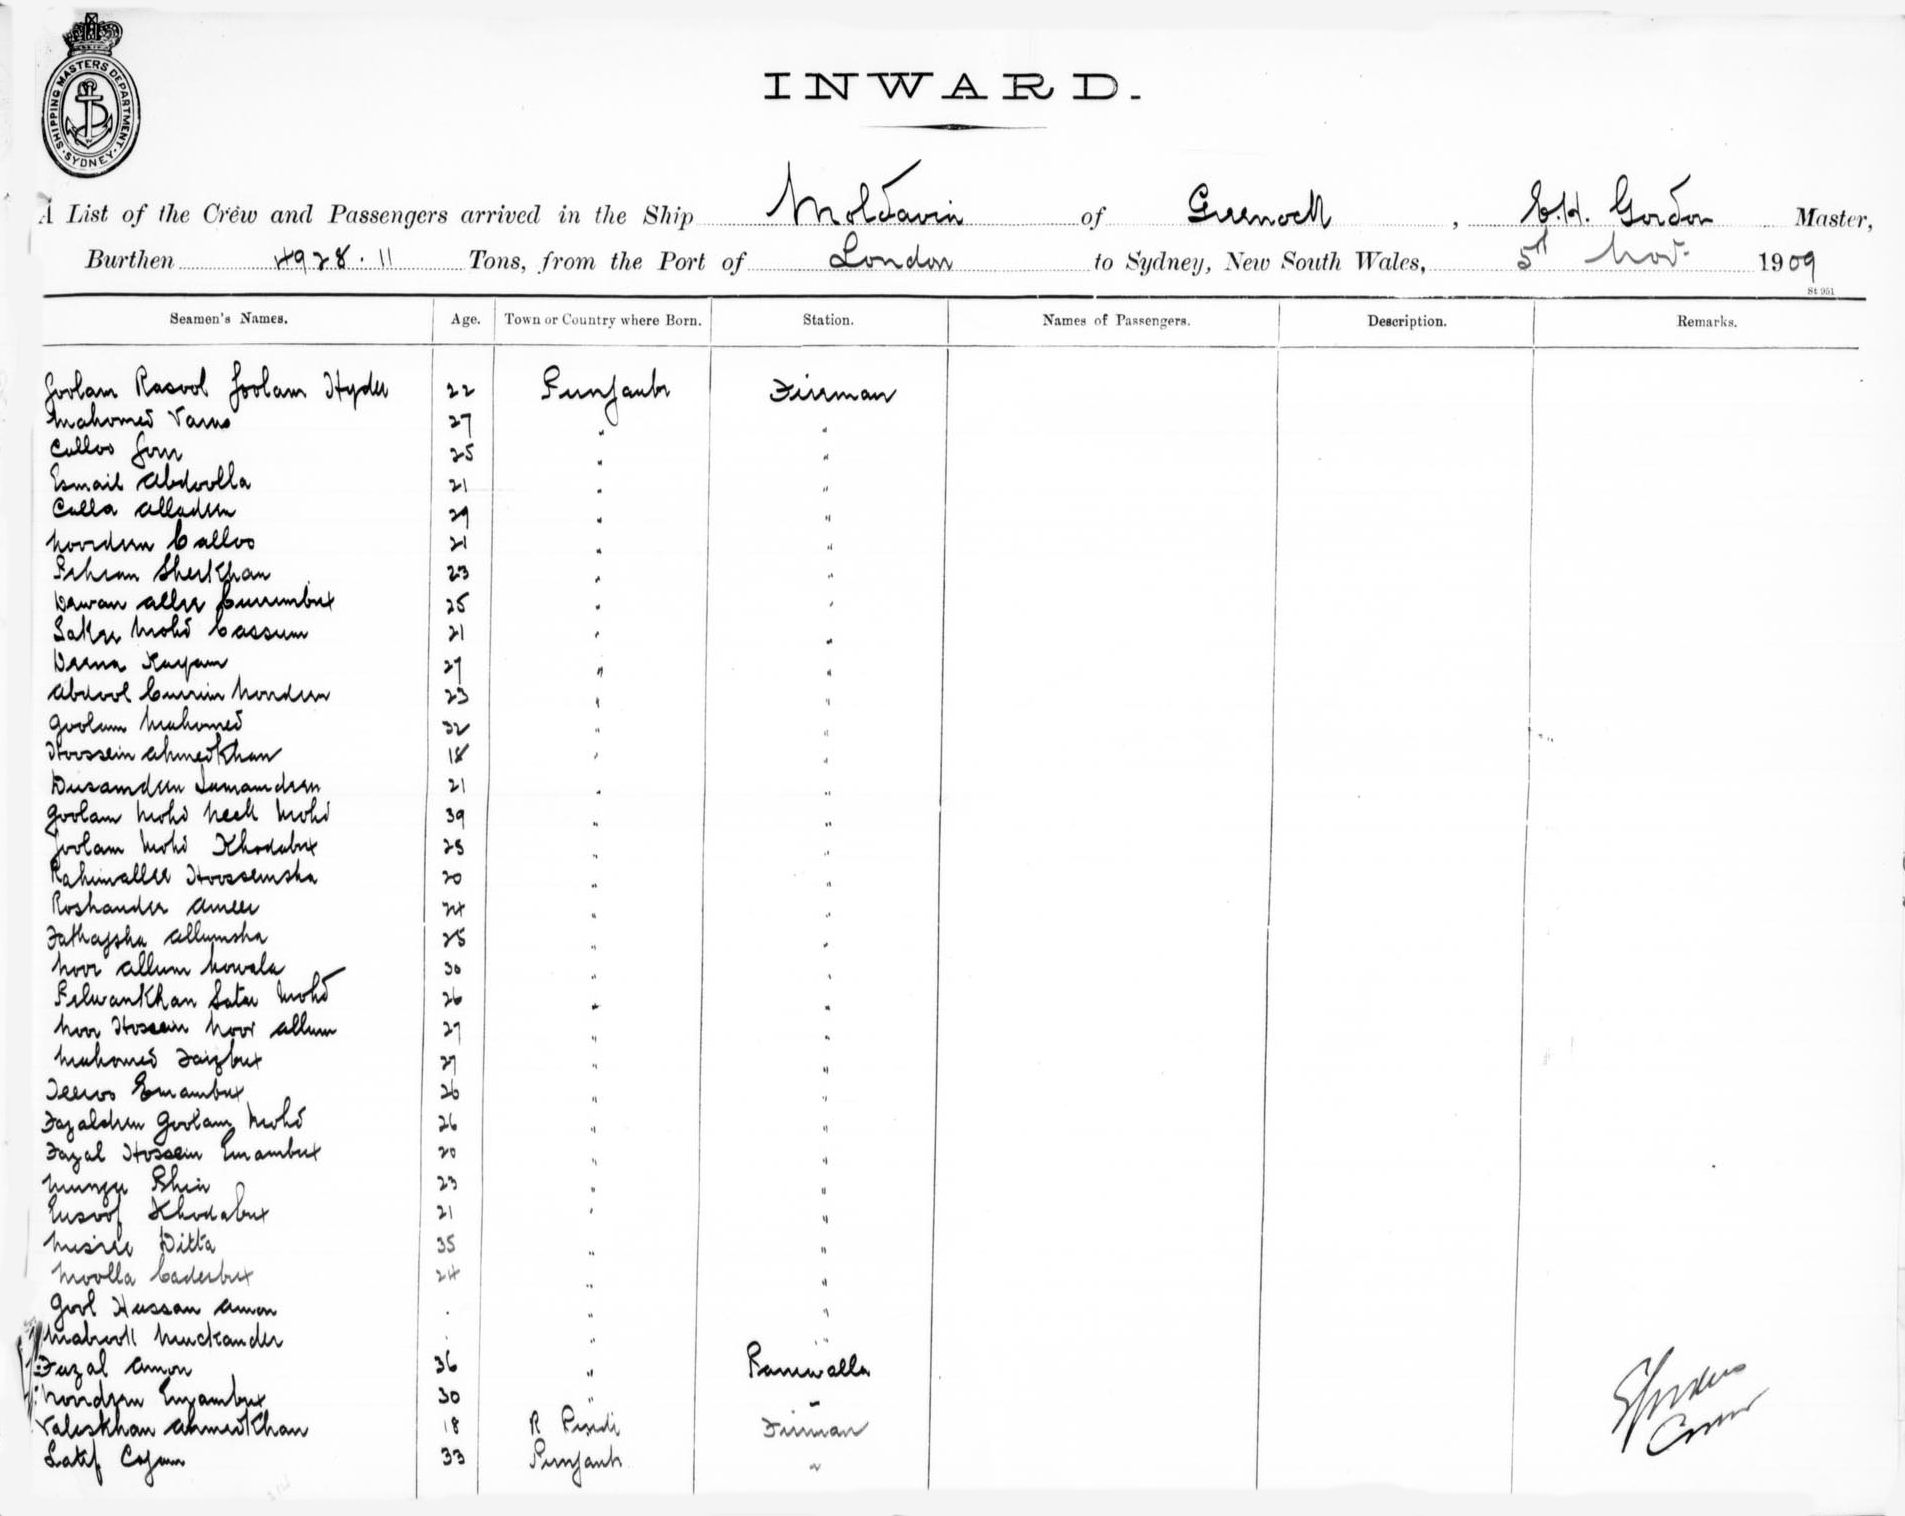 SHIPPING MASTERS DEPARTMENT · SYDNEY ·
INWARD.
A List of the Crew and Passengers arrived in the Ship Moldavia of Greenock, E.H. Gordon Master,
Burthen 4928.11 Tons, from the Port of London to Sydney, New South Wales, 5th Nov. 1909
St 951
Seamen's Names. Age. Town or Country where Born. Station. Names of Passengers. Description. Remarks.
Goolam Rasool Goolam Hyder 22 Punjaub Fireman
Mahomed 27 " "
Calloo 25 " "
Esmail Abdoolla 21 " "
Calla Alladeen 29 " "
Noordeen Calloo 21 " "
Sherkhan 23 " "
Dewan Allee Currimbux 25 " "
Mohd Cassum 21 " "
27 " "
Abdool Currim Noordeen 23 " "
Goolam Mahomed 32 " "
Hoossein Ahmedkhan 18 " "
21 " "
Goolam Mohd Neck Mohd 39 " "
Goolam Mohd Khodabux 25 " "
Rahimallee Hoosseinsha 20 " "
Roshandee Ameer 24 " "
Allumsha 25 " "
Noor Allum 30 " "
Pelwankhan Mohd 26 " "
Noor Hossein Noor Allum 27 " "
Mahomed Faizbux 27 " "
Emambux 26 " "
Fazaldeen Goolam Mohd 26 " "
Fazal Hossein Emambux 20 " "
23 " "
Eusoof Khodabux 21 " "
Ditta 35 " "
Moolla Caderbux 24 " "
Gool Hassan Amon . " "
Mabrook . " "
Fazal Amon 36 " Paniwalla
Noordeen Emambux 30 " "
Ahmedkhan 18 R Pindi Fireman
Latif 33 Punjaub "